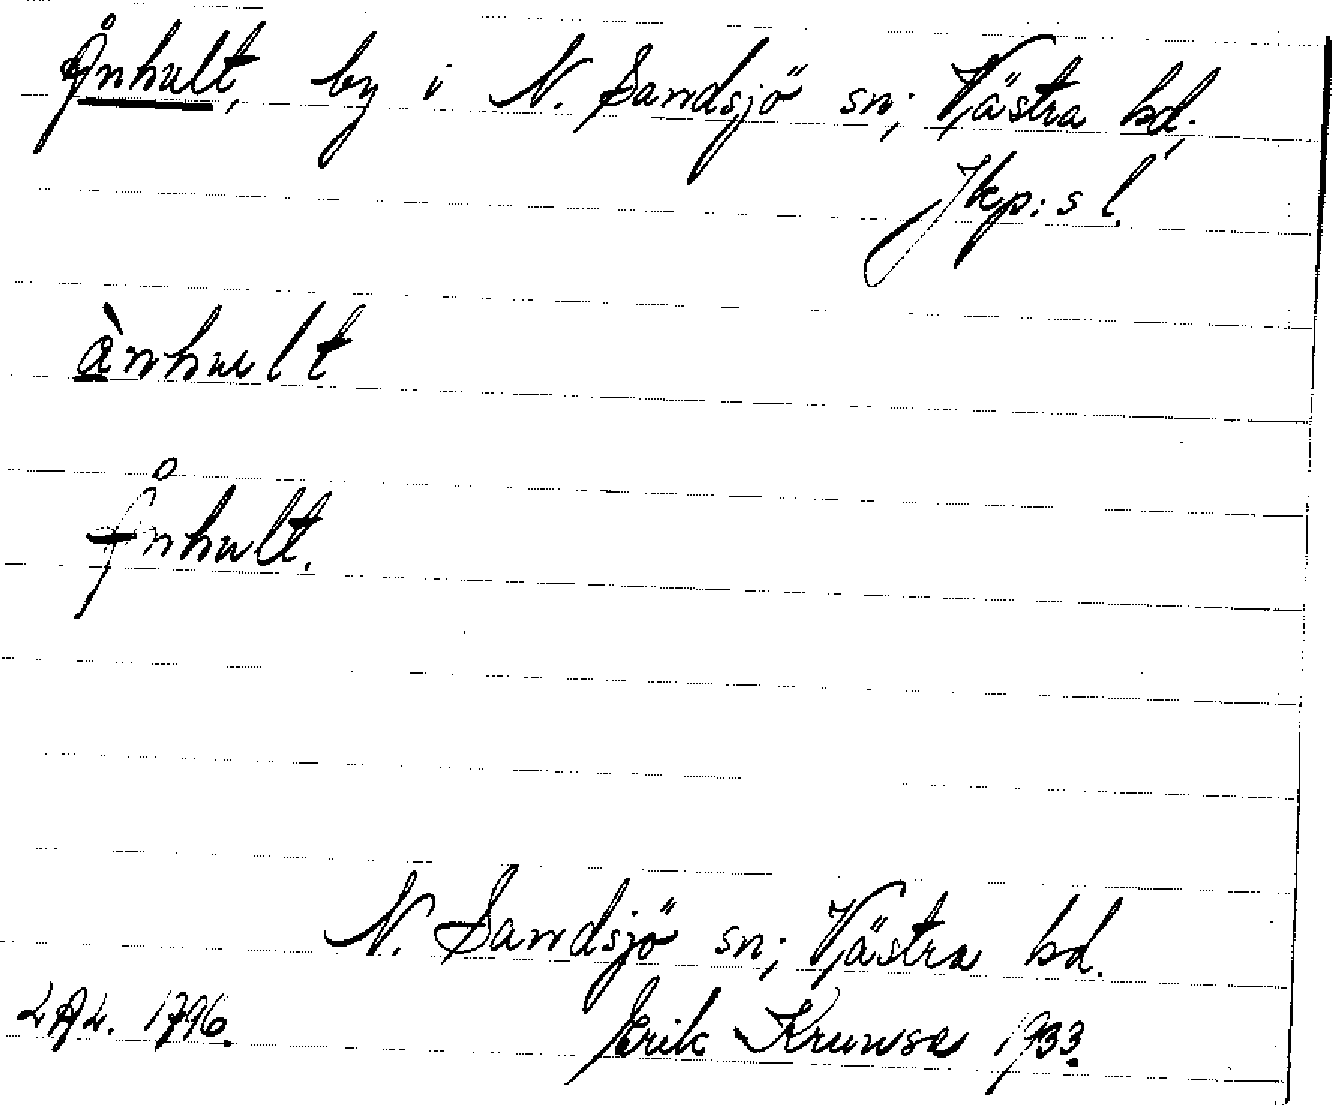 Ånhult, by i N. Sandsjö sn; Västra hd.
Jkp:s l.
ànhult
Ånhult.
N. Sandsjö sn; Västra hd.
LAL. 1796. Erik Krunsa 1933.